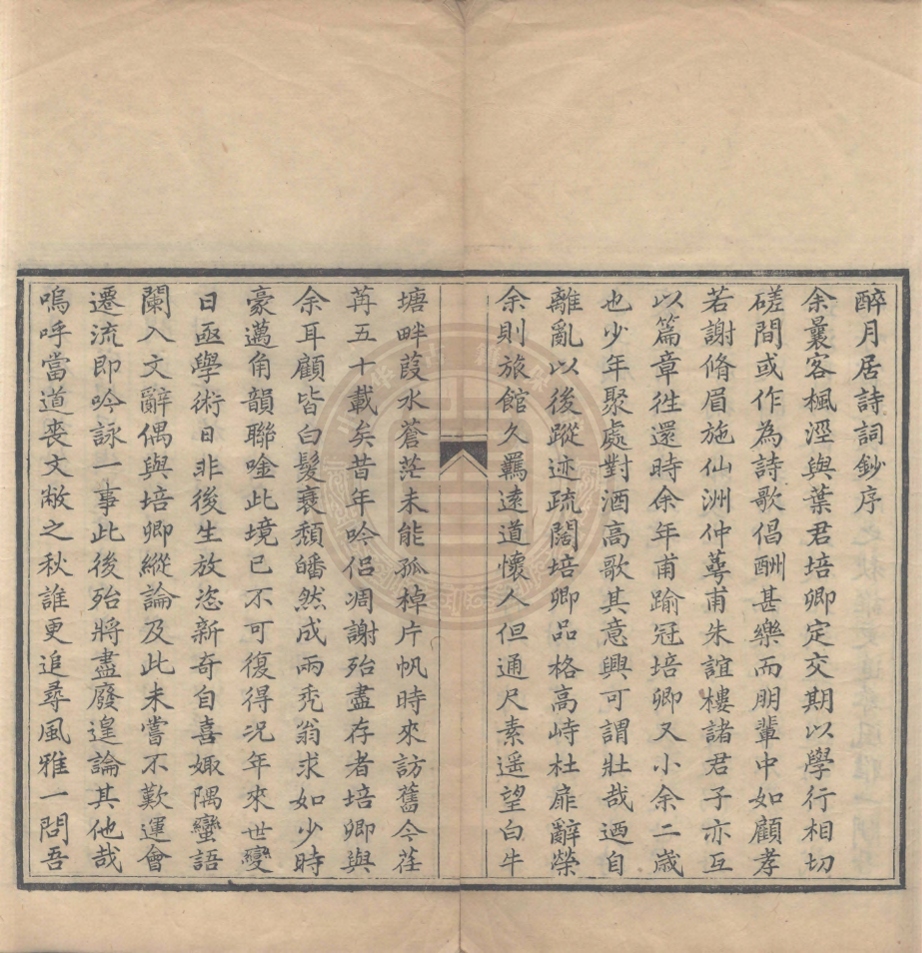 醉月居詩詞鈔序
余曩客楓涇與葉君培卿定交期以學行相切
磋間或作為詩歌倡酬甚樂而朋輩中如顧孝
若謝脩眉施仙洲仲蕚甫朱誼樓諸君子亦互
以篇章徃還時余年甫踰冠培卿又小余二歲
也少年聚處對酒高歌其意興可謂壯哉迺自
離亂以後蹤迹疏闊培卿品格高峙杜扉辭榮
余則旅館久羈遠道懷人但通尺素遥望白牛
塘畔葭水蒼茫未能孤棹片帆時來訪舊今荏
苒五十載矣昔年吟侣凋謝殆盡存者培卿與
余耳顧皆白髮衰頽皤然成兩秃翁求如少時
豪邁角韻聯唫此境已不可復得況年來世變
日亟學術日非後生放恣新奇自喜娵隅蠻語
闌入文辭偶與培卿縱論及此未嘗不歎運會
遷流即吟詠一事此後殆將盡廢遑論其他哉
嗚呼當道喪文敝之秋誰更追尋風雅一問吾